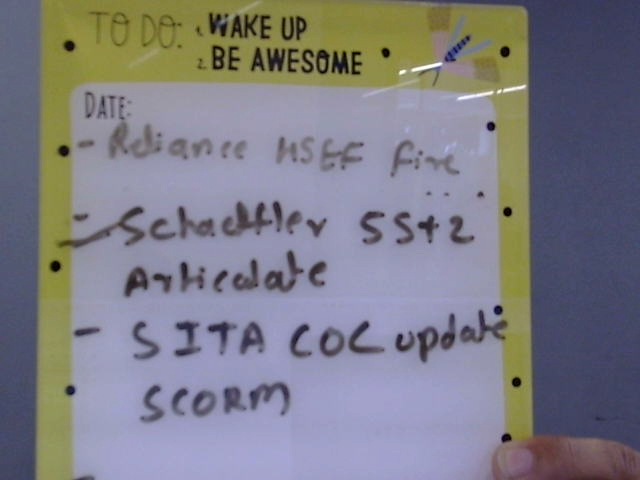 TO DO: 1. WAKE UP
2. BE AWESOME
DATE:
- Reliance HSEF Fire
- Schaeffler 5S+2
Articulate
- SITA COC update
SCORM